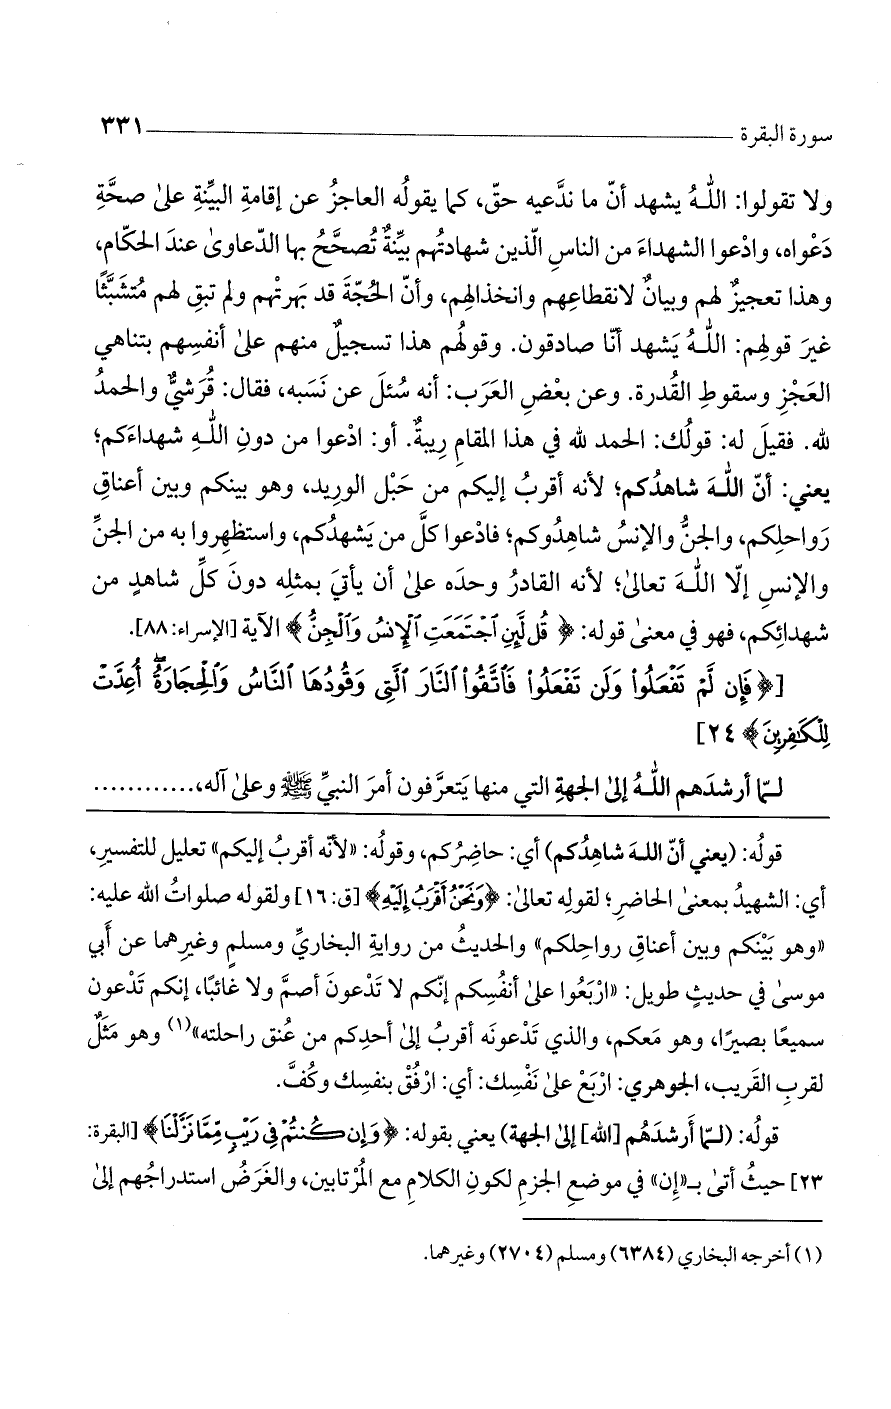 سورة البقرة ــــــــــــــــــــ ٣٣١
ولا تقولوا: اللَّـهُ يشهد أنّ ما ندَّعيه حقّ، كما يقولُه العاجزُ عن إقامةِ البيِّنةِ علىٰ صحَّةِ
دَعْواه، وادْعوا الشهداءَ من الناسِ الّذين شهادتُهم بيِّنةٌ تُصحَّحُ بها الدّعاوىٰ عندَ الحكّام،
وهذا تعجيزٌ لهم وبيانٌ لانقطاعِهم وانخذالِهم، وأنّ الحُجّةَ قد بَهرتْهم ولم تبق لهم مُتشبَّثًا
غيرَ قولِهم: اللَّـهُ يَشهد أنّا صادقون. وقولُهم هذا تسجيلٌ منهم علىٰ أنفسِهم بتناهي
العَجْزِ وسقوطِ القُدرة. وعن بعْضِ العَرَب: أنه سُئلَ عن نَسَبه، فقال: قُرَشيٌّ والحمدُ
لله. فقيلَ له: قولُك: الحمد لله في هذا المقامِ رِيبةٌ. أو: ادْعوا من دونِ اللَّـهِ شهداءَكم؛
يعني: أنّ اللَّـهَ شاهدُكم؛ لأنه أقربُ إليكم من حَبْل الوريد، وهو بينكم وبين أعناقِ
رَواحلِكم، والجنُّ والإنسُ شاهِدُوكم؛ فادْعوا كلَّ من يَشهدُكم، واستظهِروا به من الجنِّ
والإنسِ إلّا اللَّـهَ تعالىٰ؛ لأنه القادرُ وحدَه علىٰ أن يأتيَ بمثلِه دونَ كلِّ شاهدٍ من
شهدائِكم، فهو في معنىٰ قوله: ﴿ قُل لَّئِنِ ٱجْتَمَعَتِ ٱلْإِنسُ وَٱلْجِنُّ ﴾ الآية [الإسراء: ٨٨].
[﴿ فَإِن لَّمْ تَفْعَلُوا۟ وَلَن تَفْعَلُوا۟ فَٱتَّقُوا۟ ٱلنَّارَ ٱلَّتِى وَقُودُهَا ٱلنَّاسُ وَٱلْحِجَارَةُ ۖ أُعِدَّتْ
لِلْكَـٰفِرِينَ ﴾ ٢٤]
لـمّا أرشدَهم اللَّـهُ إلىٰ الجهةِ التي منها يَتعرَّفون أمرَ النبيِّ ﷺ وعلىٰ آله، ............
قولُه: (يعني أنّ اللهَ شاهِدُكم) أي: حاضِرُكم، وقولُه: «لأنّه أقربُ إليكم» تعليل للتفسيرِ،
أي: الشهيدُ بمعنىٰ الحاضرِ؛ لقولِه تعالىٰ: ﴿وَنَحْنُ أَقْرَبُ إِلَيْهِ﴾ [ق: ١٦] ولقوله صلواتُ الله عليه:
«وهو بَيْنَكم وبين أعناقِ رواحِلكم» والحديثُ من روايةِ البخاريِّ ومسلمٍ وغيرهما عن أبي
موسىٰ في حديثٍ طويل: «ارْبَعُوا علىٰ أنفُسِكم إنّكم لا تَدْعونَ أصمَّ ولا غائبًا، إنكم تَدْعون
سميعًا بصيرًا، وهو مَعكم، والذي تَدْعونَه أقربُ إلىٰ أحدِكم من عُنق راحلته»(١) وهو مَثَلٌ
لقربِ القَريب، الجوهري: ارْبَعْ علىٰ نَفْسِك: أي: ارْفُقْ بنفسِك وكُفَّ.
قولُه: (لـمّا أَرشدَهُم [الله] إلىٰ الجهة) يعني بقوله: ﴿ وَإِن كُنتُمْ فِى رَيْبٍ مِّمَّا نَزَّلْنَا﴾ [البقرة:
٢٣] حيثُ أتىٰ بـ«إن» في موضعِ الجزمِ لكونِ الكلامِ مع المُرْتابين، والغَرَضُ استدراجُهم إلىٰ
(١) أخرجه البخاري (٦٣٨٤) ومسلم (٢٧٠٤) وغيرهما.